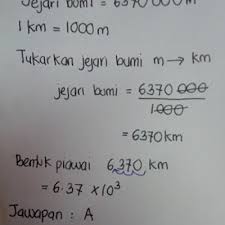 Jejari bumi = 6370 000 m
1 km = 1000 m
Tukarkan jejari bumi m → km
jejari bumi = 6370 000
1000
= 6370 km
Bentuk piawai 6,370 km
= 6.37 × 10³
Jawapan : A